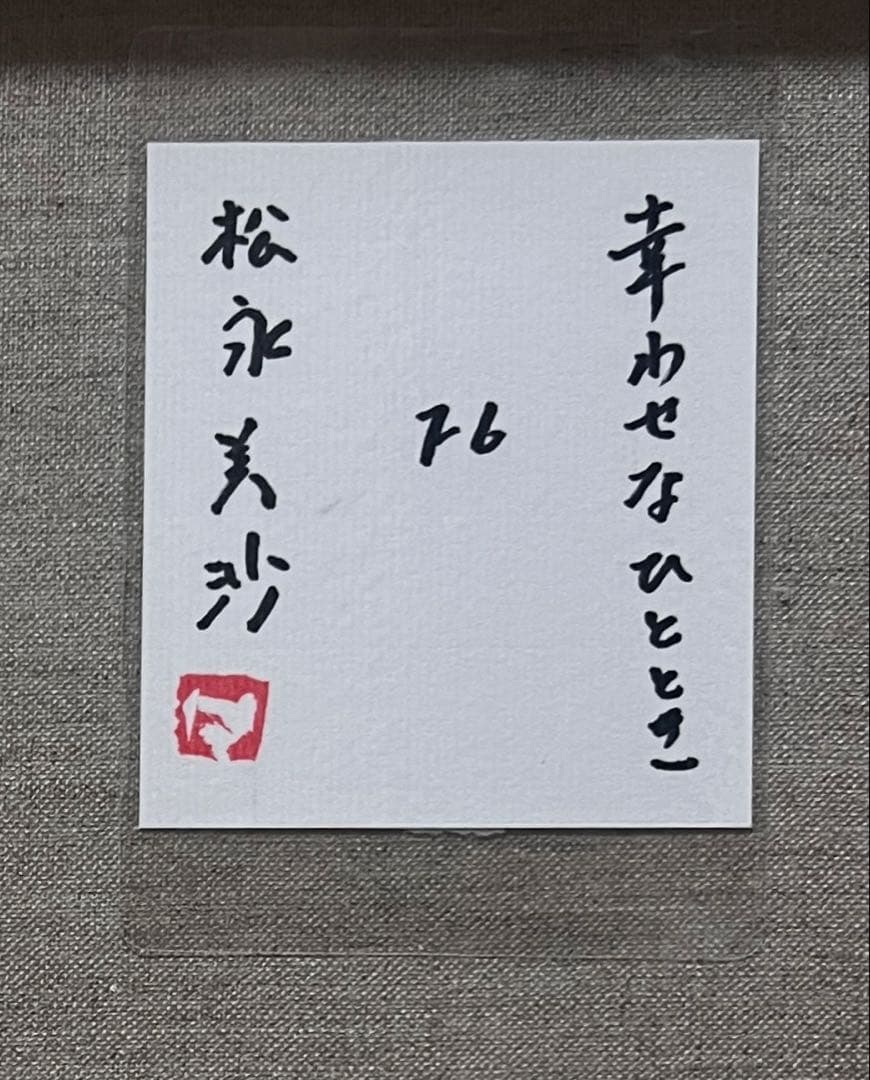 幸わせなひととき
F6
松永美沙